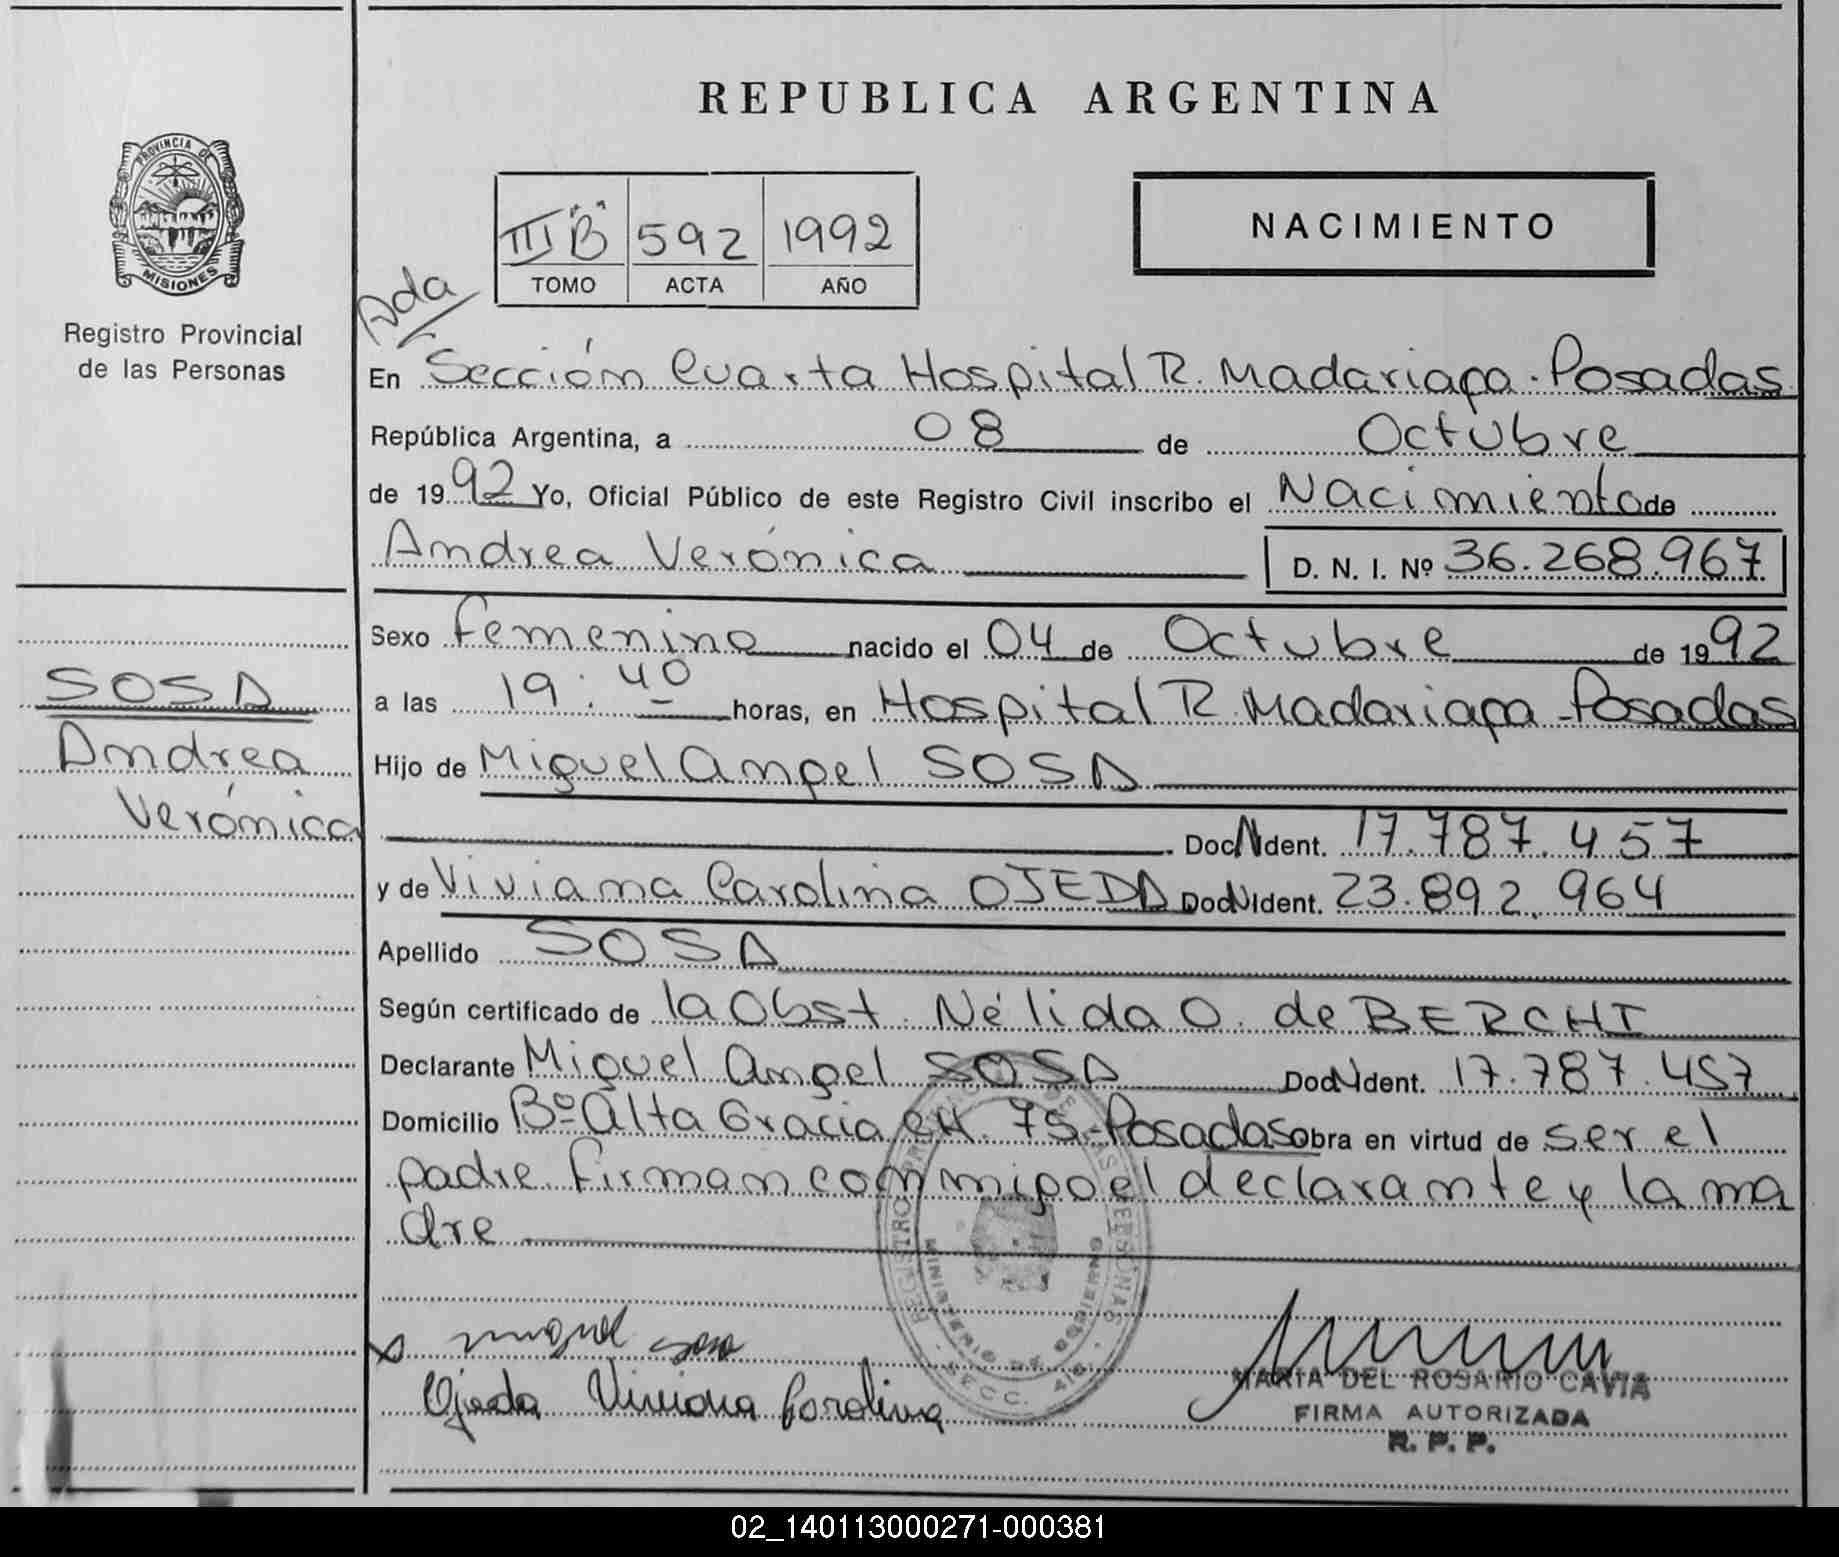 REPUBLICA ARGENTINA
PROVINCIA DE
MISIONES
Registro Provincial
de las Personas
III "B" 592 1992
TOMO ACTA AÑO
NACIMIENTO
Ada
En Sección Cuarta Hospital R. Madariaga - Posadas
República Argentina, a 08 de Octubre
de 1992 Yo, Oficial Público de este Registro Civil inscribo el Nacimiento de
Andrea Verónica D. N. I. Nº 36.268.967
Sexo femenino nacido el 04 de Octubre de 1992
a las 19:40 horas, en Hospital R. Madariaga - Posadas
SOSA
Andrea
Verónica
Hijo de Miguel Angel SOSA
Doc. N Ident. 17.787.457
y de Viviana Carolina OJEDA Doc. N Ident. 23.892.964
Apellido SOSA
Según certificado de la Obst. Nélida O. de BERCHI
Declarante Miguel Angel SOSA Doc. N Ident. 17.787.457
Domicilio Bº Alta Gracia CH. 75 - Posadas obra en virtud de ser el
padre. Firman conmigo el declarante y la ma
dre
REGISTRO PROVINCIAL DE LAS PERSONAS
MINISTERIO DE GOBIERNO
SECC. 4ta.
miguel sosa
Ojeda Viviana Carolina
MARIA DEL ROSARIO CAVIA
FIRMA AUTORIZADA
R. P. P.
02_140113000271-000381